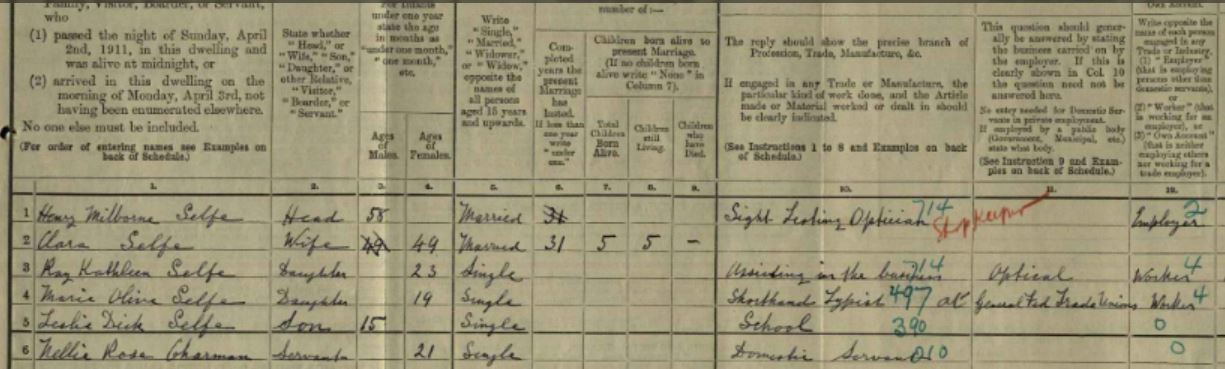 Family, Visitor, Boarder, or Servant,
who
(1) passed the night of Sunday, April
2nd, 1911, in this dwelling and
was alive at midnight, or
(2) arrived in this dwelling on the
morning of Monday, April 3rd, not
having been enumerated elsewhere.
No one else must be included.
(For order of entering names see Examples on
back of Schedule.)
State whether
"Head," or
"Wife," "Son,"
"Daughter," or
other Relative,
"Visitor,"
"Boarder," or
"Servant."
For Infants
under one year
state the age
in months as
"under one month,"
"one month,"
etc.
Ages
of
Males.
Ages
of
Females.
Write
"Single,"
"Married,"
"Widower,"
or "Widow,"
opposite the
names of
all persons
aged 15 years
and upwards.
number of:—
Com-
pleted
years the
present
Marriage
has
lasted.
If less than
one year
write
"under
one."
Children born alive to
present Marriage.
(If no children born
alive write "None" in
Column 7).
Total
Children
Born
Alive.
Children
still
Living.
Children
who
have
Died.
The reply should show the precise branch of
Profession, Trade, Manufacture, &c.
If engaged in any Trade or Manufacture, the
particular kind of work done, and the Article
made or Material worked or dealt in should
be clearly indicated.
(See Instructions 1 to 8 and Examples on back
of Schedule.)
This question should gener-
ally be answered by stating
the business carried on by
the employer. If this is
clearly shown in Col. 10
the question need not be
answered here.
No entry needed for Domestic Ser-
vants in private employment.
If employed by a public body
(Government, Municipal, etc.)
state what body.
(See Instruction 9 and Exam-
ples on back of Schedule.)
Own Account.
Write opposite the
name of each person
engaged in any
Trade or Industry,
(1) "Employer"
(that is employing
persons other than
domestic servants),
or
(2) "Worker" (that
is working for an
employer), or
(3) "Own Account"
(that is neither
employing others
nor working for a
trade employer).
1. 2. 3. 4. 5. 6. 7. 8. 9. 10. 11. 12.
1 Henry Milborne Selfe Head 58 Married 31 Sight Testing Optician 714 Shopkeeper Employer 2
2 Clara Selfe Wife 49 49 Married 31 5 5 –
3 Ray Kathleen Selfe Daughter 23 Single Assisting in the business 714 Optical Worker 4
4 Marie Olive Selfe Daughter 19 Single Shorthand Typist 497 at General Fed Trade Unions Worker 4
5 Leslie Dick Selfe Son 15 Single School 390 0
6 Nellie Rose Charman Servant 21 Single Domestic Servant 010 0